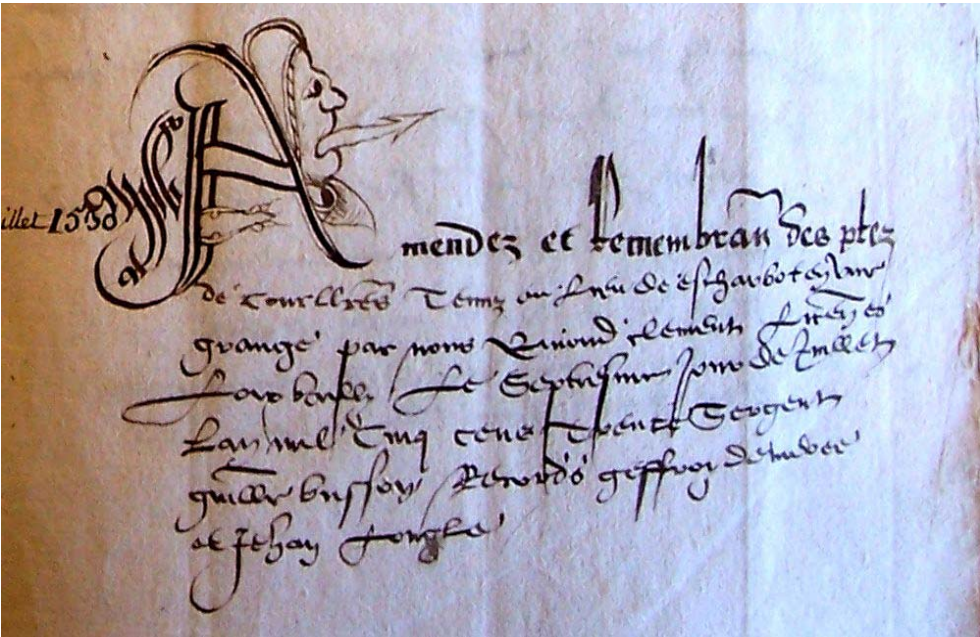 illet 1530
Amendez et Remembran des ptez
de Courllres Tenuz ou Lieu de escharbot
grange par nous Rimond clement Licen es
Loix bailly Le Septiesme Jour de Juillet
Lan mil Cinq cens Trente Sergent
guille busson Records geffroy
et Jehan